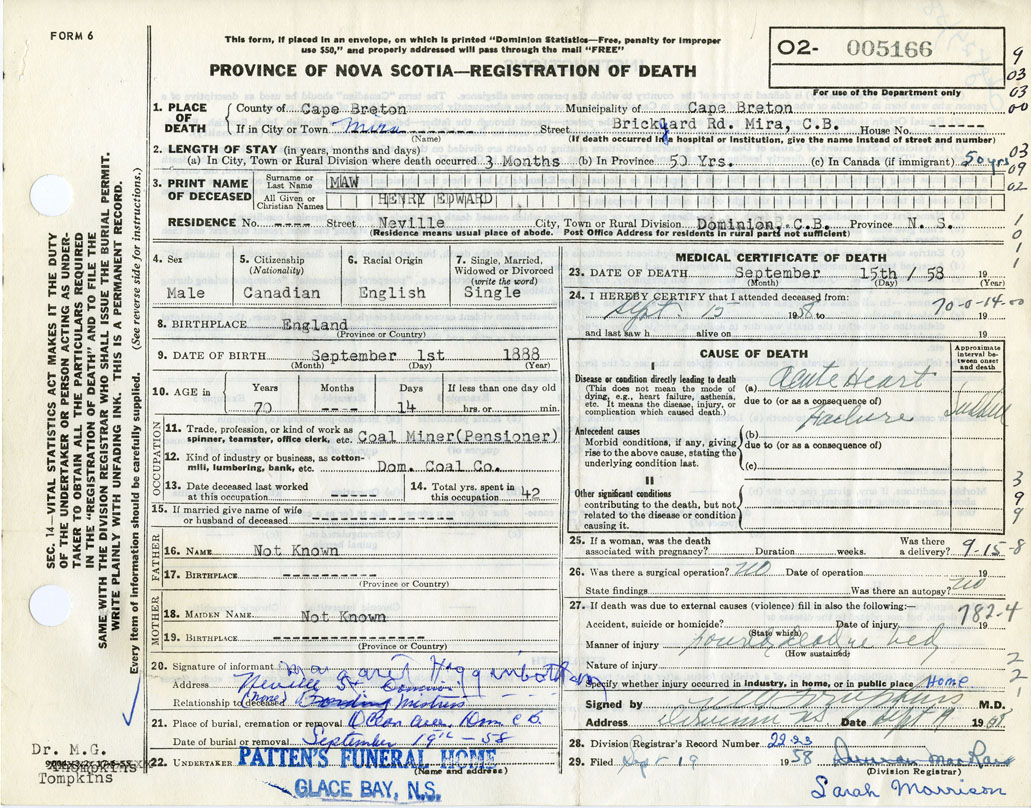 FORM 6
This form, if placed in an envelope, on which is printed "Dominion Statistics—Free, penalty for improper
use $50," and properly addressed will pass through the mail "FREE"
PROVINCE OF NOVA SCOTIA—REGISTRATION OF DEATH
02- 005166
For use of the Department only
9
03
03
00
1. PLACE OF DEATH
County of Cape Breton
Municipality of Cape Breton
If in City or Town Mira -------- Street Brickyard Rd. Mira, C.B. House No. ------
(Name) (If death occurred in a hospital or institution, give the name instead of street and number)
2. LENGTH OF STAY (in years, months and days)
(a) In City, Town or Rural Division where death occurred 3 Months (b) In Province 50 Yrs. (c) In Canada (if immigrant) 50 yrs
03
09
02
3. PRINT NAME OF DECEASED
Surname or Last Name MAW
All Given or Christian Names HENRY EDWARD
RESIDENCE No. ---- Street Neville City, Town or Rural Division Dominion, C.B. Province N. S.
(Residence means usual place of abode. Post Office Address for residents in rural parts not sufficient)
1
0
1
1
4. Sex
Male
5. Citizenship (Nationality)
Canadian
6. Racial Origin
English
7. Single, Married, Widowed or Divorced (write the word)
Single
8. BIRTHPLACE England
(Province or Country)
9. DATE OF BIRTH September 1st 1888
(Month) (Day) (Year)
10. AGE in
Years Months Days If less than one day old
70 ---- 14 hrs. or min.
OCCUPATION
11. Trade, profession, or kind of work as
spinner, teamster, office clerk, etc. Coal Miner(Pensioner)
12. Kind of industry or business, as cotton-
mill, lumbering, bank, etc. Dom. Coal Co.
13. Date deceased last worked
at this occupation -----
14. Total yrs. spent in
this occupation 42
15. If married give name of wife
or husband of deceased ---------------
FATHER
16. NAME Not Known
17. BIRTHPLACE ---------
(Province or Country)
MOTHER
18. MAIDEN NAME Not Known
19. BIRTHPLACE ----------------
(Province or Country)
20. Signature of informant Margaret Higginbotham
Address Neville St Dominion
Relationship to deceased (None) Boarding Mistress
21. Place of burial, cremation or removal
Date of burial or removal September 19th - 58
22. UNDERTAKER PATTEN'S FUNERAL HOME
(Name and address)
GLACE BAY, N.S.
MEDICAL CERTIFICATE OF DEATH
23. DATE OF DEATH September 15th / 58 19
(Month) (Day) (Year)
24. I HEREBY CERTIFY that I attended deceased from:
Sept 15 1958 to 19
70-0-14-00
and last saw h alive on 19
CAUSE OF DEATH
Approximate interval between onset and death
I
Disease or condition directly leading to death
(This does not mean the mode of
dying, e.g., heart failure, asthenia,
etc. It means the disease, injury, or
complication which caused death.)
(a) Acute Heart
due to (or as a consequence of)
Failure
Sudden
Antecedent causes
Morbid conditions, if any, giving
rise to the above cause, stating the
underlying condition last.
(b)
due to (or as a consequence of)
(c)
II
Other significant conditions
contributing to the death, but not
related to the disease or condition
causing it.
3
9
9
9
25. If a woman, was the death
associated with pregnancy? Duration weeks. Was there a delivery?
9-15-8
26. Was there a surgical operation? no Date of operation 19
State findings Was there an autopsy? no
27. If death was due to external causes (violence) fill in also the following:—
782-4
Accident, suicide or homicide? Date of injury 19
(State which)
Manner of injury found dead in bed
(How sustained)
Nature of injury
Specify whether injury occurred in industry, in home, or in public place Home
2
2
1
Signed by M.D.
Address Dominion NS Date Sept 19 1958
28. Division Registrar's Record Number 2223
29. Filed Sept 19 1958
(Division Registrar)
Sarah Morrison
SEC. 14—VITAL STATISTICS ACT MAKES IT THE DUTY
OF THE UNDERTAKER OR PERSON ACTING AS UNDER-
TAKER TO OBTAIN ALL THE PARTICULARS REQUIRED
IN THE "REGISTRATION OF DEATH" AND TO FILE THE
SAME WITH THE DIVISION REGISTRAR WHO SHALL ISSUE THE BURIAL PERMIT.
WRITE PLAINLY WITH UNFADING INK. THIS IS A PERMANENT RECORD.
Every item of information should be carefully supplied. (See reverse side for instructions.)
Dr. M.G.
Thompkins
Tompkins